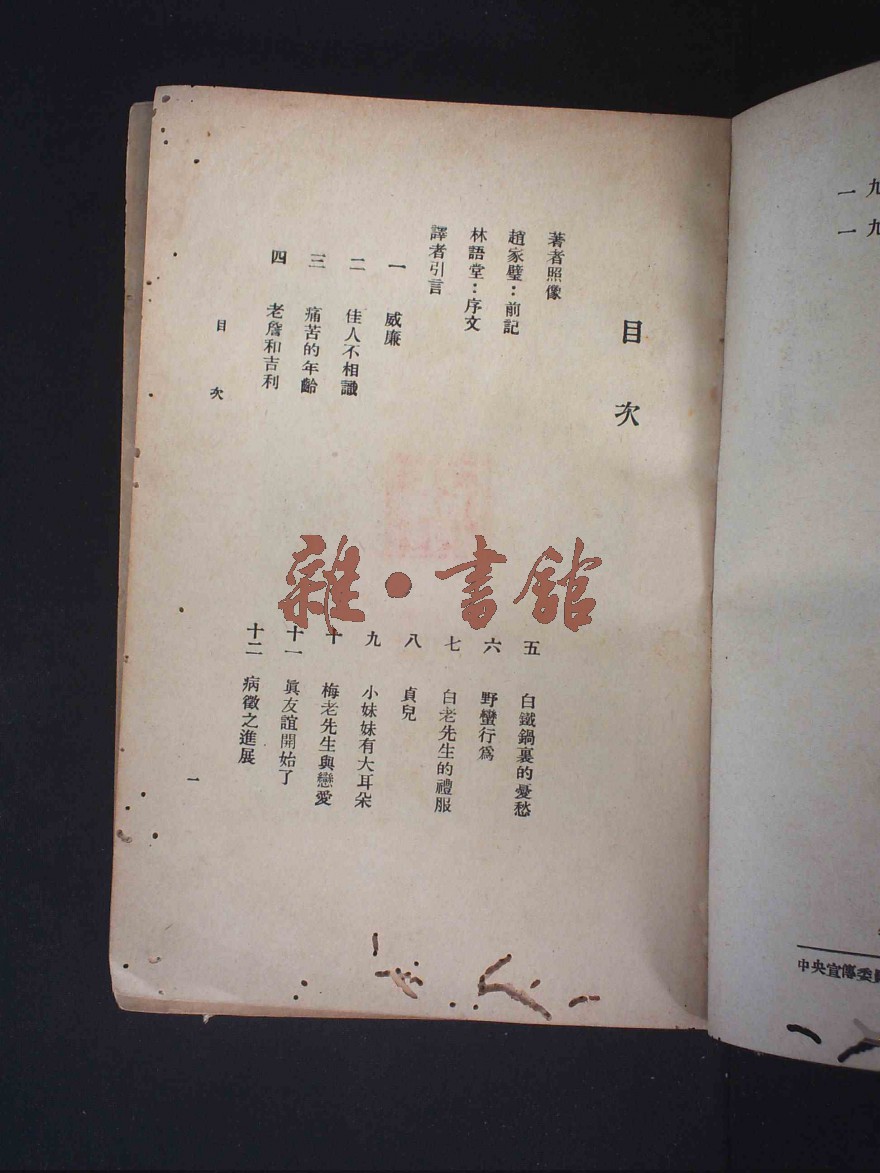 目次
著者照像
趙家璧：前記
林語堂：序文
譯者引言
一 威廉
二 佳人不相識
三 痛苦的年齡
四 老詹和吉利
五 白鐵鍋裏的憂愁
六 野蠻行爲
七 白老先生的禮服
八 貞兒
九 小妹妹有大耳朵
十 梅老先生與戀愛
十一 眞友誼開始了
十二 病徵之進展
目次
一
雜·書館
一九
一九
中央宣傳委